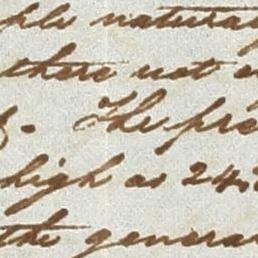 ple natural
there not
. The pre
high as 242
the genera